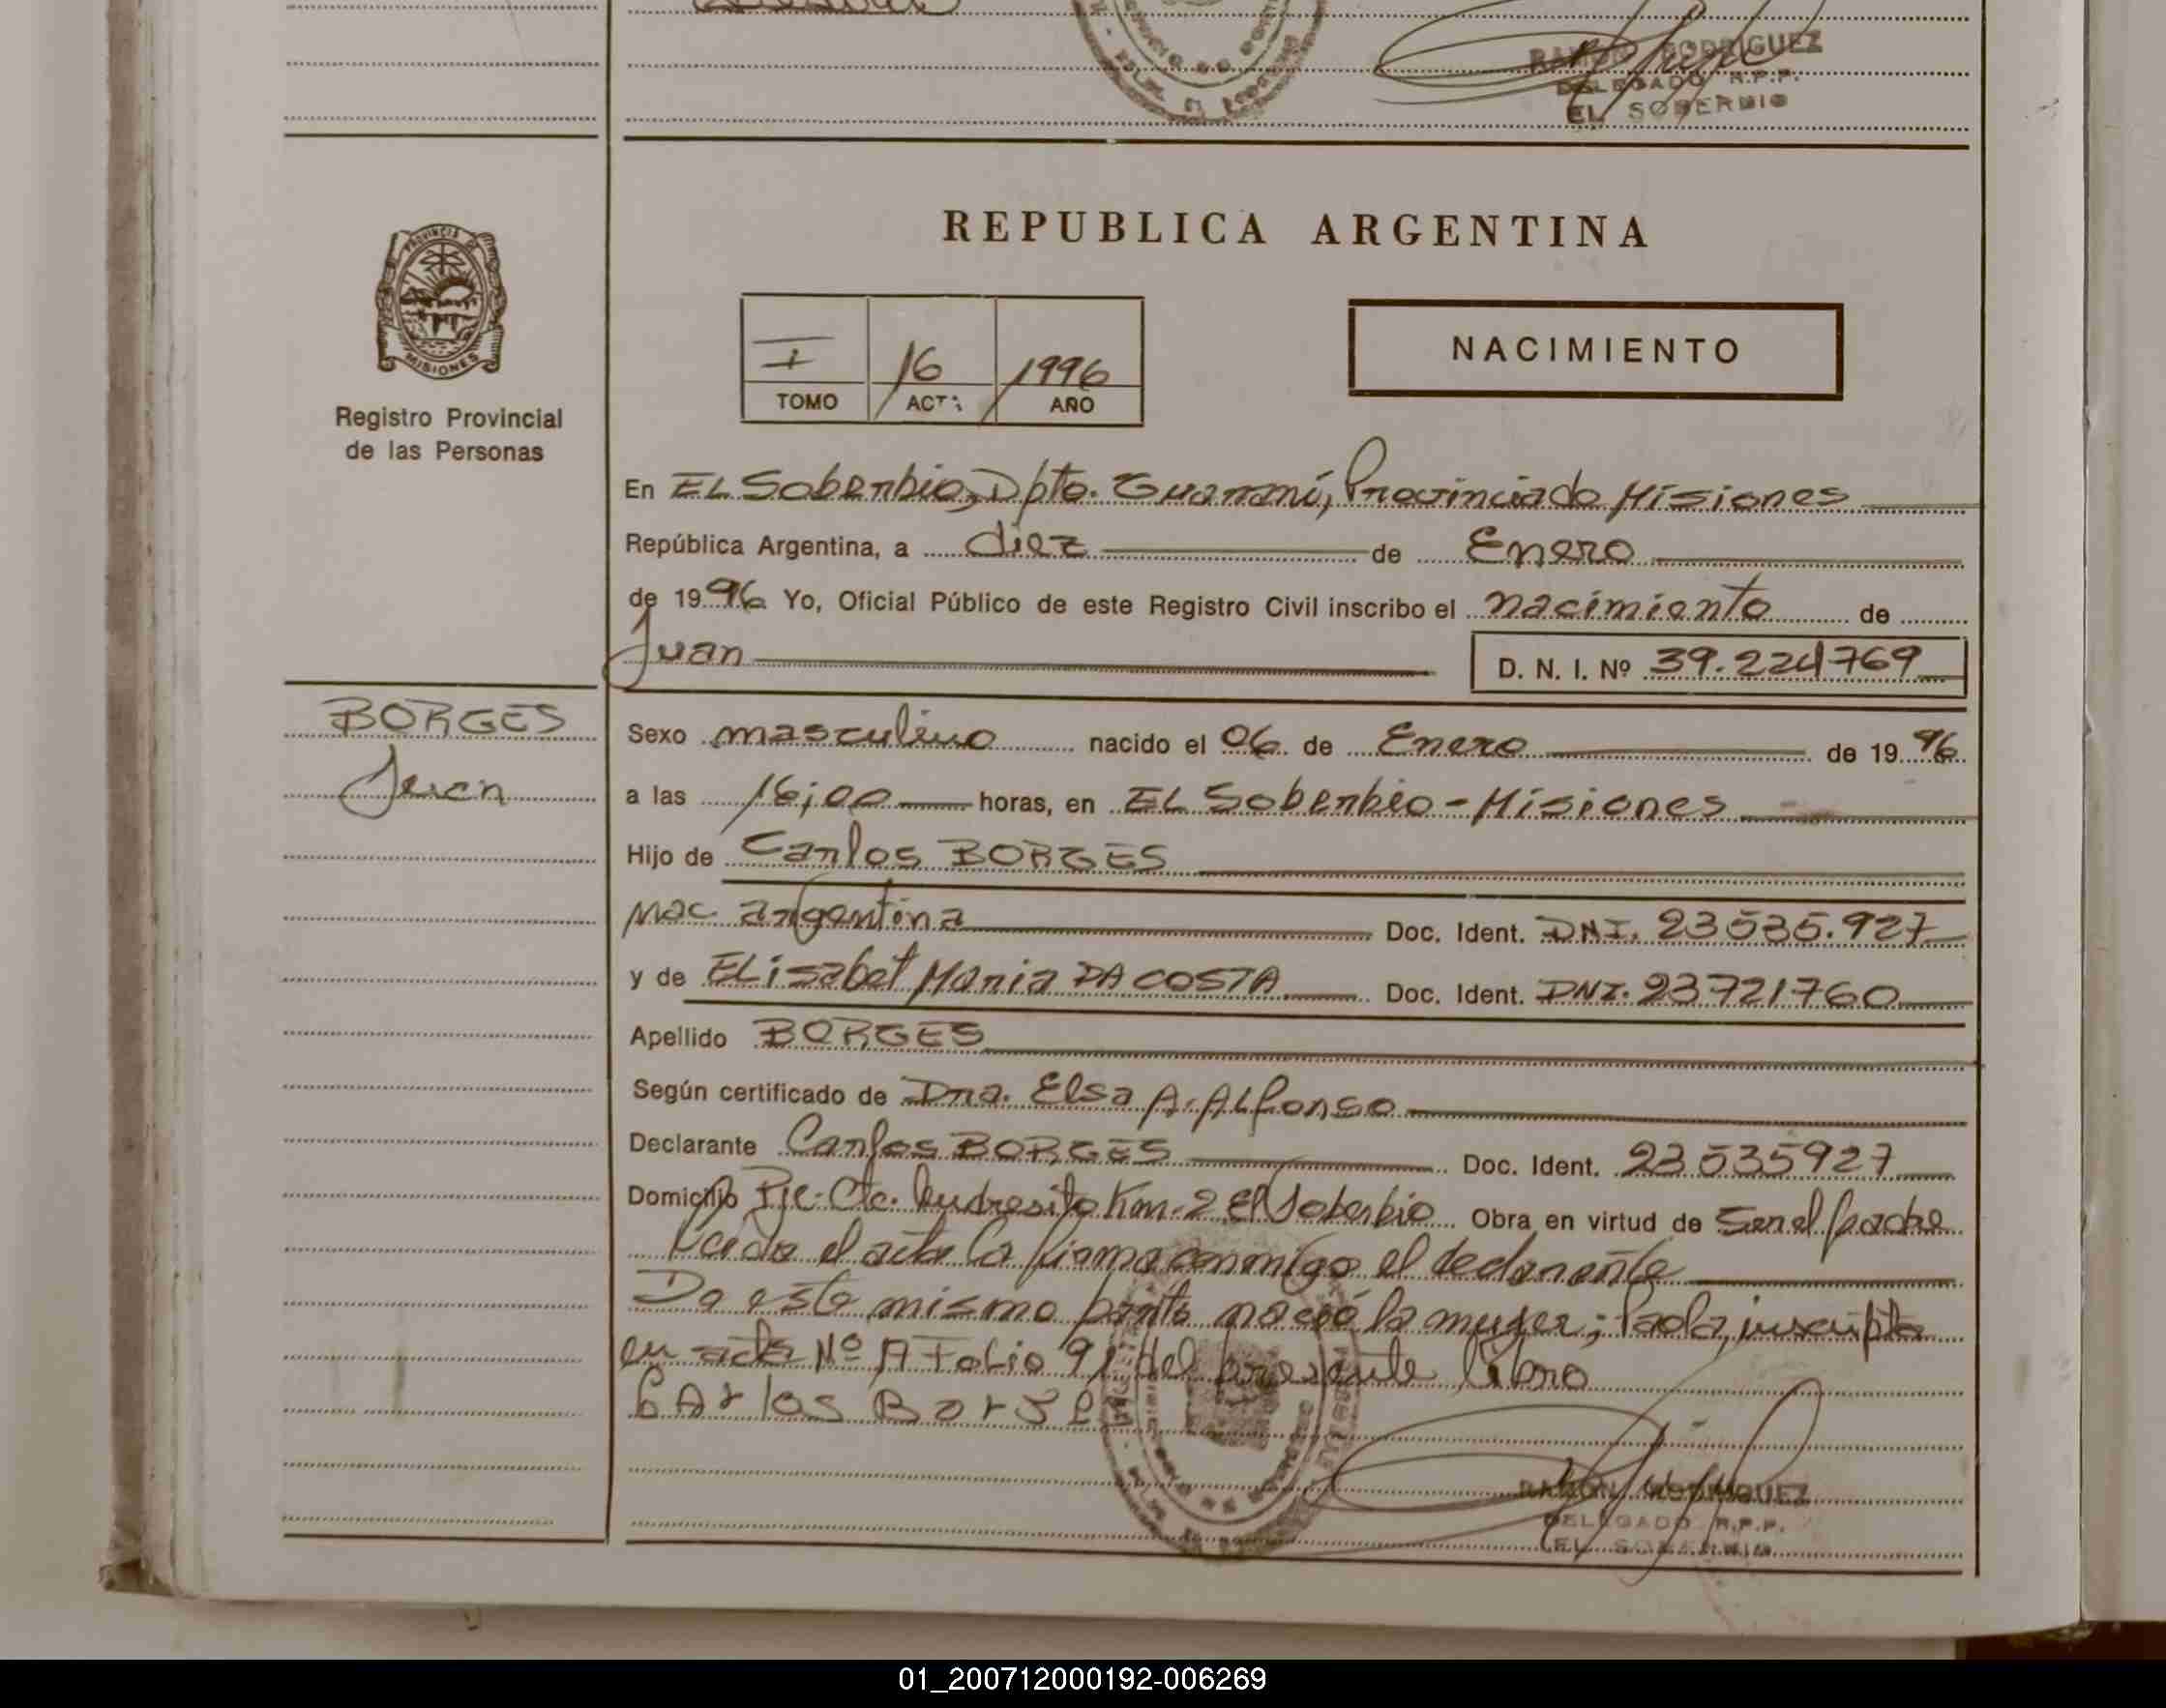 RAMON RODRIGUEZ
DELEGADO R.P.P.
EL SOBERBIO
PROVINCIA DE
MISIONES
Registro Provincial
de las Personas
REPUBLICA ARGENTINA
I 16 1996
TOMO ACTA AÑO
NACIMIENTO
En EL Soberbio, Dpto. Guaraní, Provincia de Misiones
República Argentina, a diez de Enero
de 1996 Yo, Oficial Público de este Registro Civil inscribo el nacimiento de
Juan D. N. I. Nº 39.224769
BORGES
Juan
Sexo masculino nacido el 06 de Enero de 1996
a las 16;00 horas, en EL Soberbio - Misiones
Hijo de Carlos BORGES
Nac. argentina Doc. Ident. DNI. 23535.927
y de ELisabet Maria DA COSTA Doc. Ident. DNI. 23721760
Apellido BORGES
Según certificado de Dra. Elsa A. ALfonso
Declarante Carlos BORGES Doc. Ident. 23535927
Domicilio Pje. Cte. Andresito Km. 2 El Soberbio Obra en virtud de Ser el padre
Leida el acta la firma conmigo el declarante
De este mismo parto nació la mujer; Paola, inscripta
en acta Nº Folio 91 del presente libro
CArlos Borges
RAMON RODRIGUEZ
DELEGADO R.P.P.
EL SOBERBIO
01_200712000192-006269